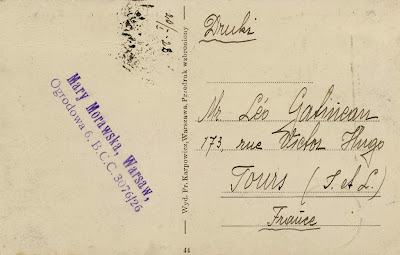 20/I-28
Mary Morawska, Warsaw,
Ogrodowa 6. B. C. C. 3076/26
Wyd. Fr. Karpowicz, Warszawa. Przedruk wzbroniony
44
Druki
Mr Léo Gatineau
173, rue Victor Hugo
Tours (I. et L.)
France